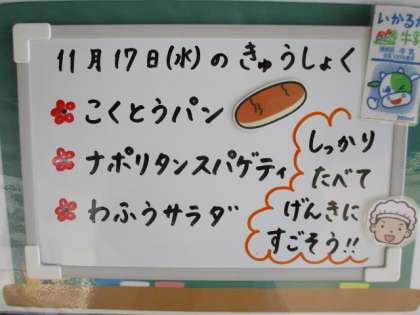 11月17日(水)のきゅうしょく
こくとうパン
ナポリタンスパゲティ
わふうサラダ
しっかり
たべて
げんきに
すごそう!!
いかるが
牛乳